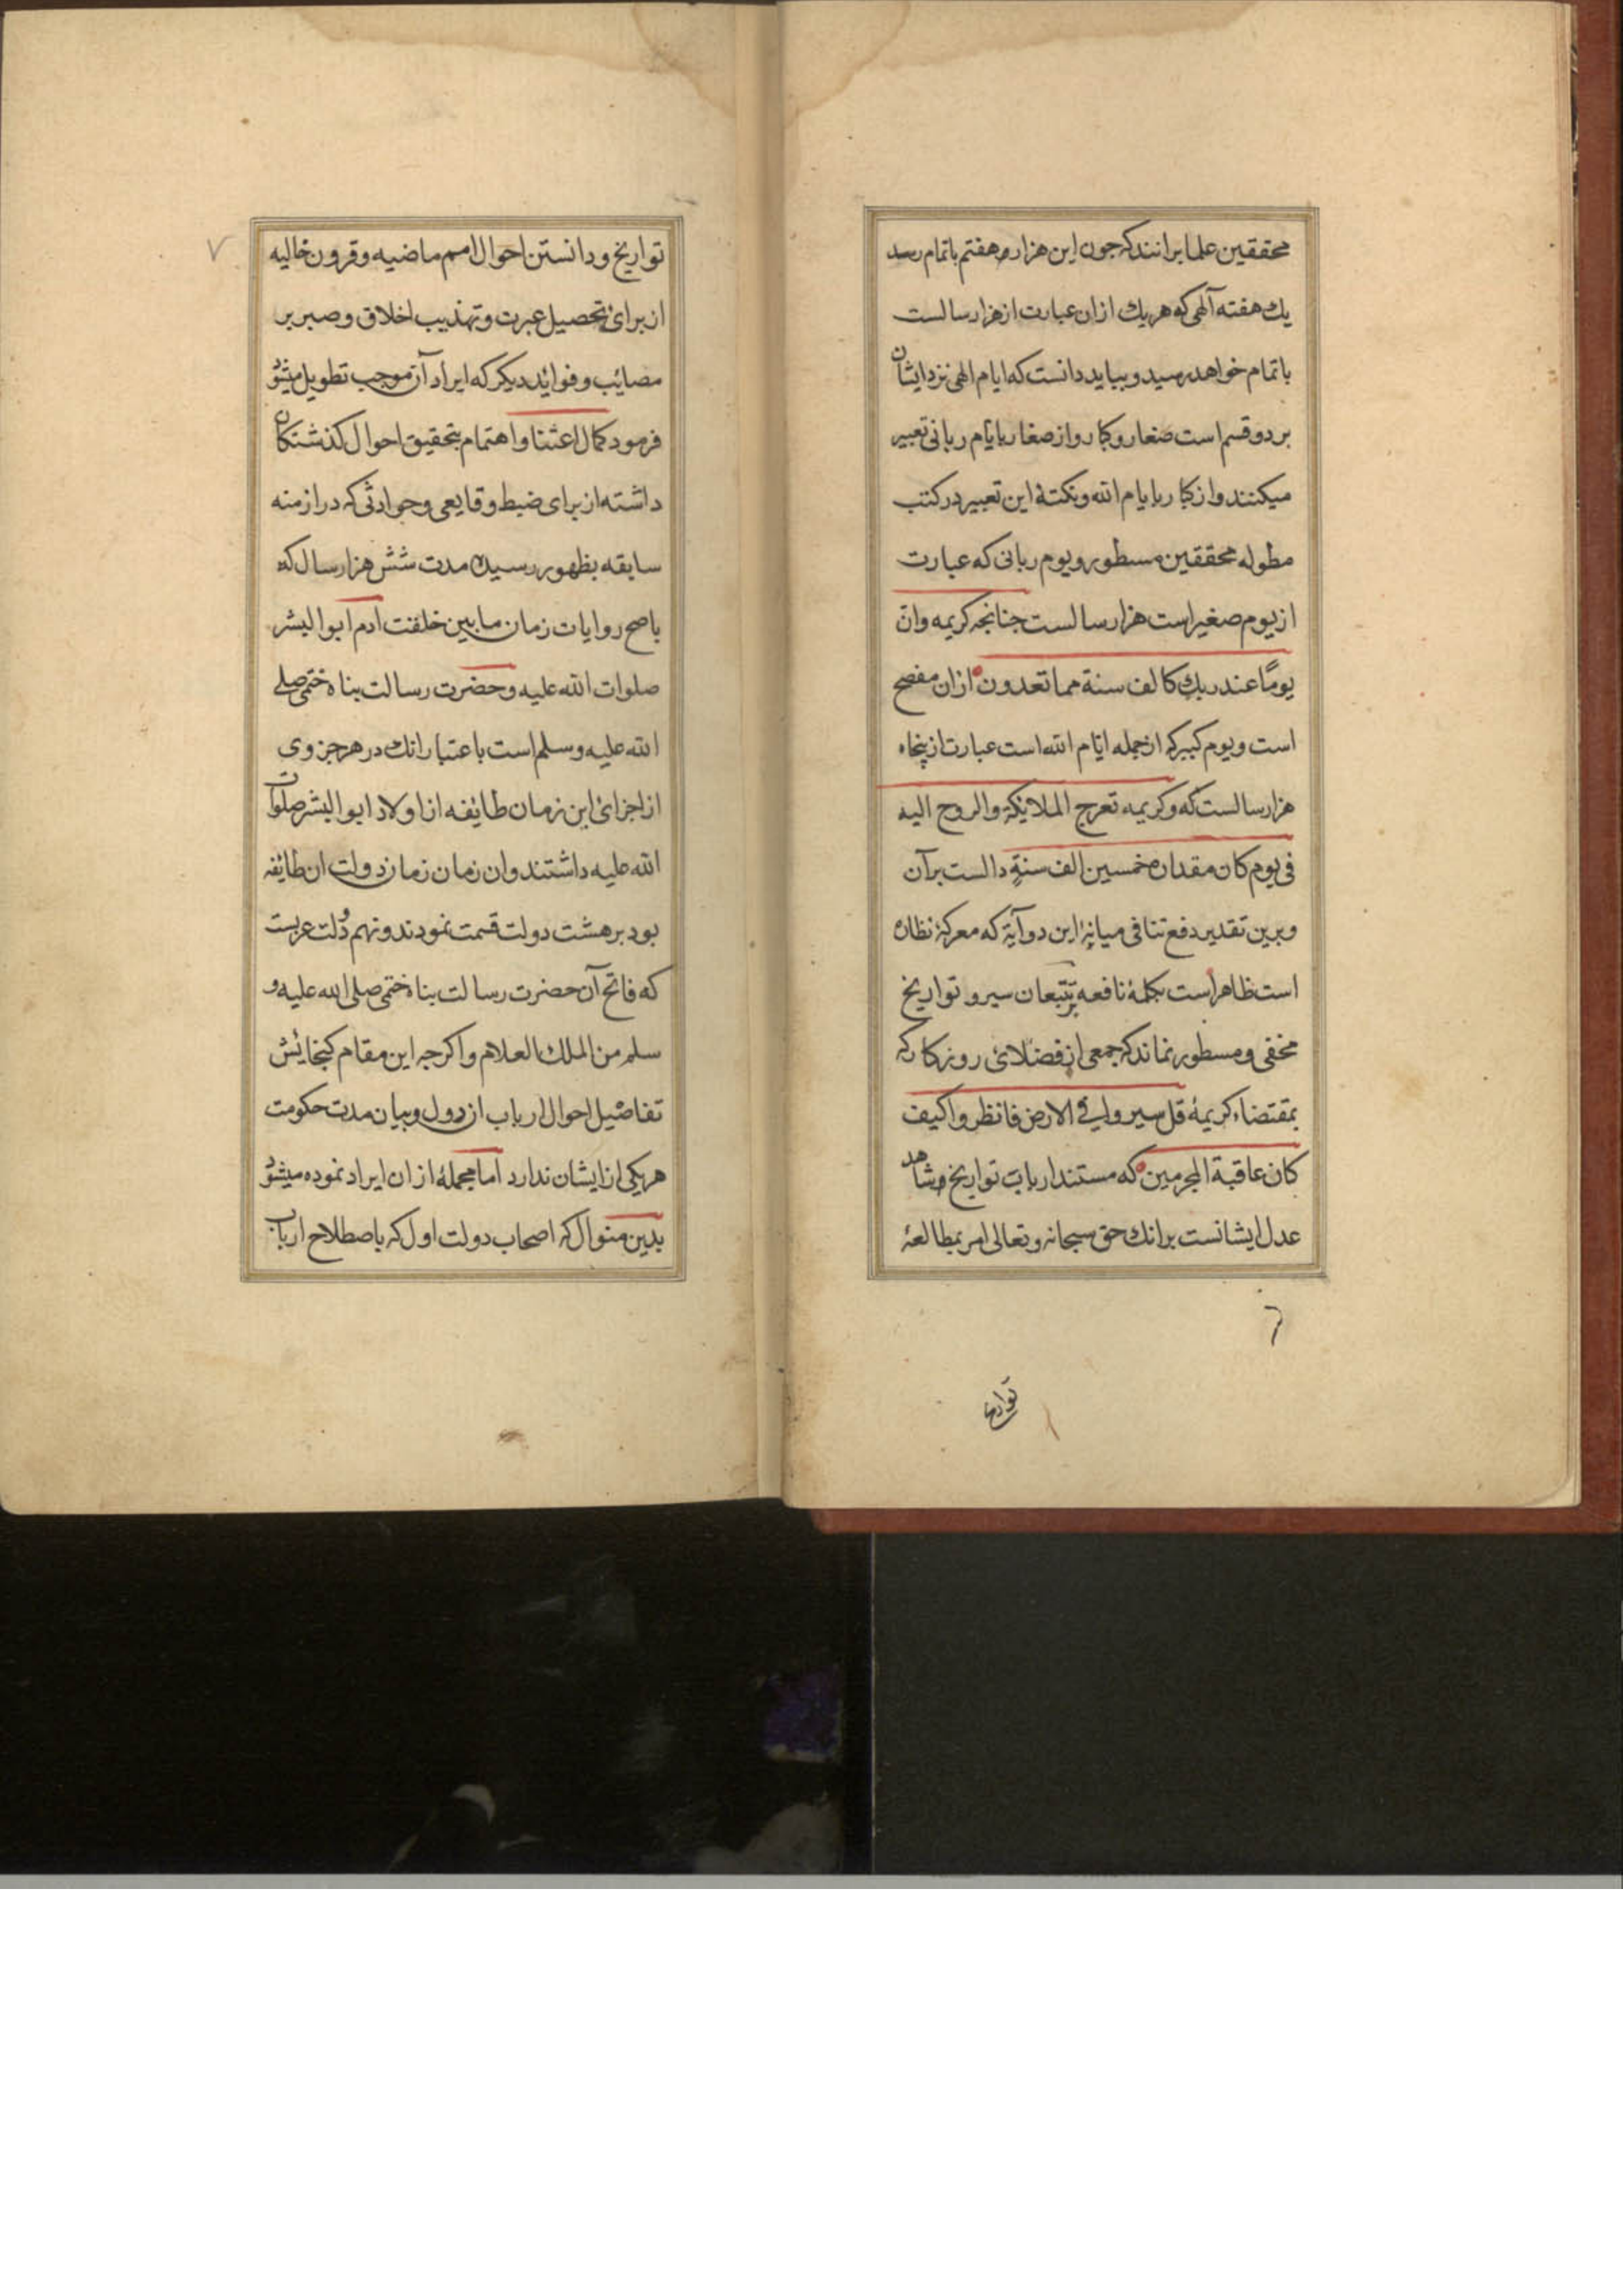 محققین علما برانند که جون این هزاره هفتم باتمام رسد
یك هفته آلهی که هر یك ازان عبارت از هزار سالست
باتمام خواهد رسید و بباید دانست که ایام الهی نزد ایشان
بر دو قسم است صغار و کبار و از صغار بایام ربانی تعبیر
میکنند و از کبار بایام الله و نکتهٔ این تعبیر در کتب
مطوله محققین مسطور و یوم ربانی که عبارت
از یوم صغیر است هزار سالست جنانجه کریمه وان
یومًا عند ربك کالف سنة مما تعدون ازان مفصح
است و یوم کبیر که از جمله ایام الله است عبارت از پنجاه
هزار سالست که و کریمه تعرج الملائکة والروح الیه
فی یوم کان مقداره خمسین الف سنةٍ دالست برآن
و برین تقدیر دفع تنافی میانهٔ این دو آیة که معرکهٔ نظاره
است ظاهر است بکلمهٔ نافعه بر تتبعان سیر و تواریخ
مخفی و مسطور نماند که جمعی از فضلای روزکار که
بمقتضاء کریمهٔ قل سیروا فی الارض فانظروا کیف
کان عاقبة المجرمین که مستند ارباب تواریخ و شاهد
عدل ایشانست برانك حق سبحانه و تعالی امر بمطالعهٔ
٦
تواریخ
٧
تواریخ و دانستن احوال امم ماضیه و قرون خالیه
از برای تحصیل عبرت و تهذیب اخلاق و صبر بر
مصائب و فوائد دیکر که ایراد آن موجب تطویل میشود
فرمود کمال اعتنا و اهتمام بتحقیق احوال کذشتکان
داشته از برای ضبط وقایعی و حوادثی که در ازمنه
سابقه بظهور رسیده مدت شش هزار سال که
باصح روایات زمان مابین خلفت ادم ابوالبشر
صلوات الله علیه و حضرت رسالت بناه ختمی صلی
الله علیه وسلم است باعتبار انك در هر جزوی
از اجزای این زمان طائفه از اولاد ابوالبشر صلوات
الله علیه داشتند و ان زمان زمان دولت ان طایفه
بود بر هشت دولت قسمت نمودند و نهم دولت عربست
که فاتح آن حضرت رسالت بناه ختمی صلی الله علیه و
سلم من الملك العلام و اکرجه این مقام کنجایش
تفاصیل احوال ارباب ازدول و بیان مدت حکومت
هر یکی از ایشان ندارد اما مجملهٔ ازان ایراد نموده میشود
بدین منوال که اصحاب دولت اول که باصطلاح ارباب